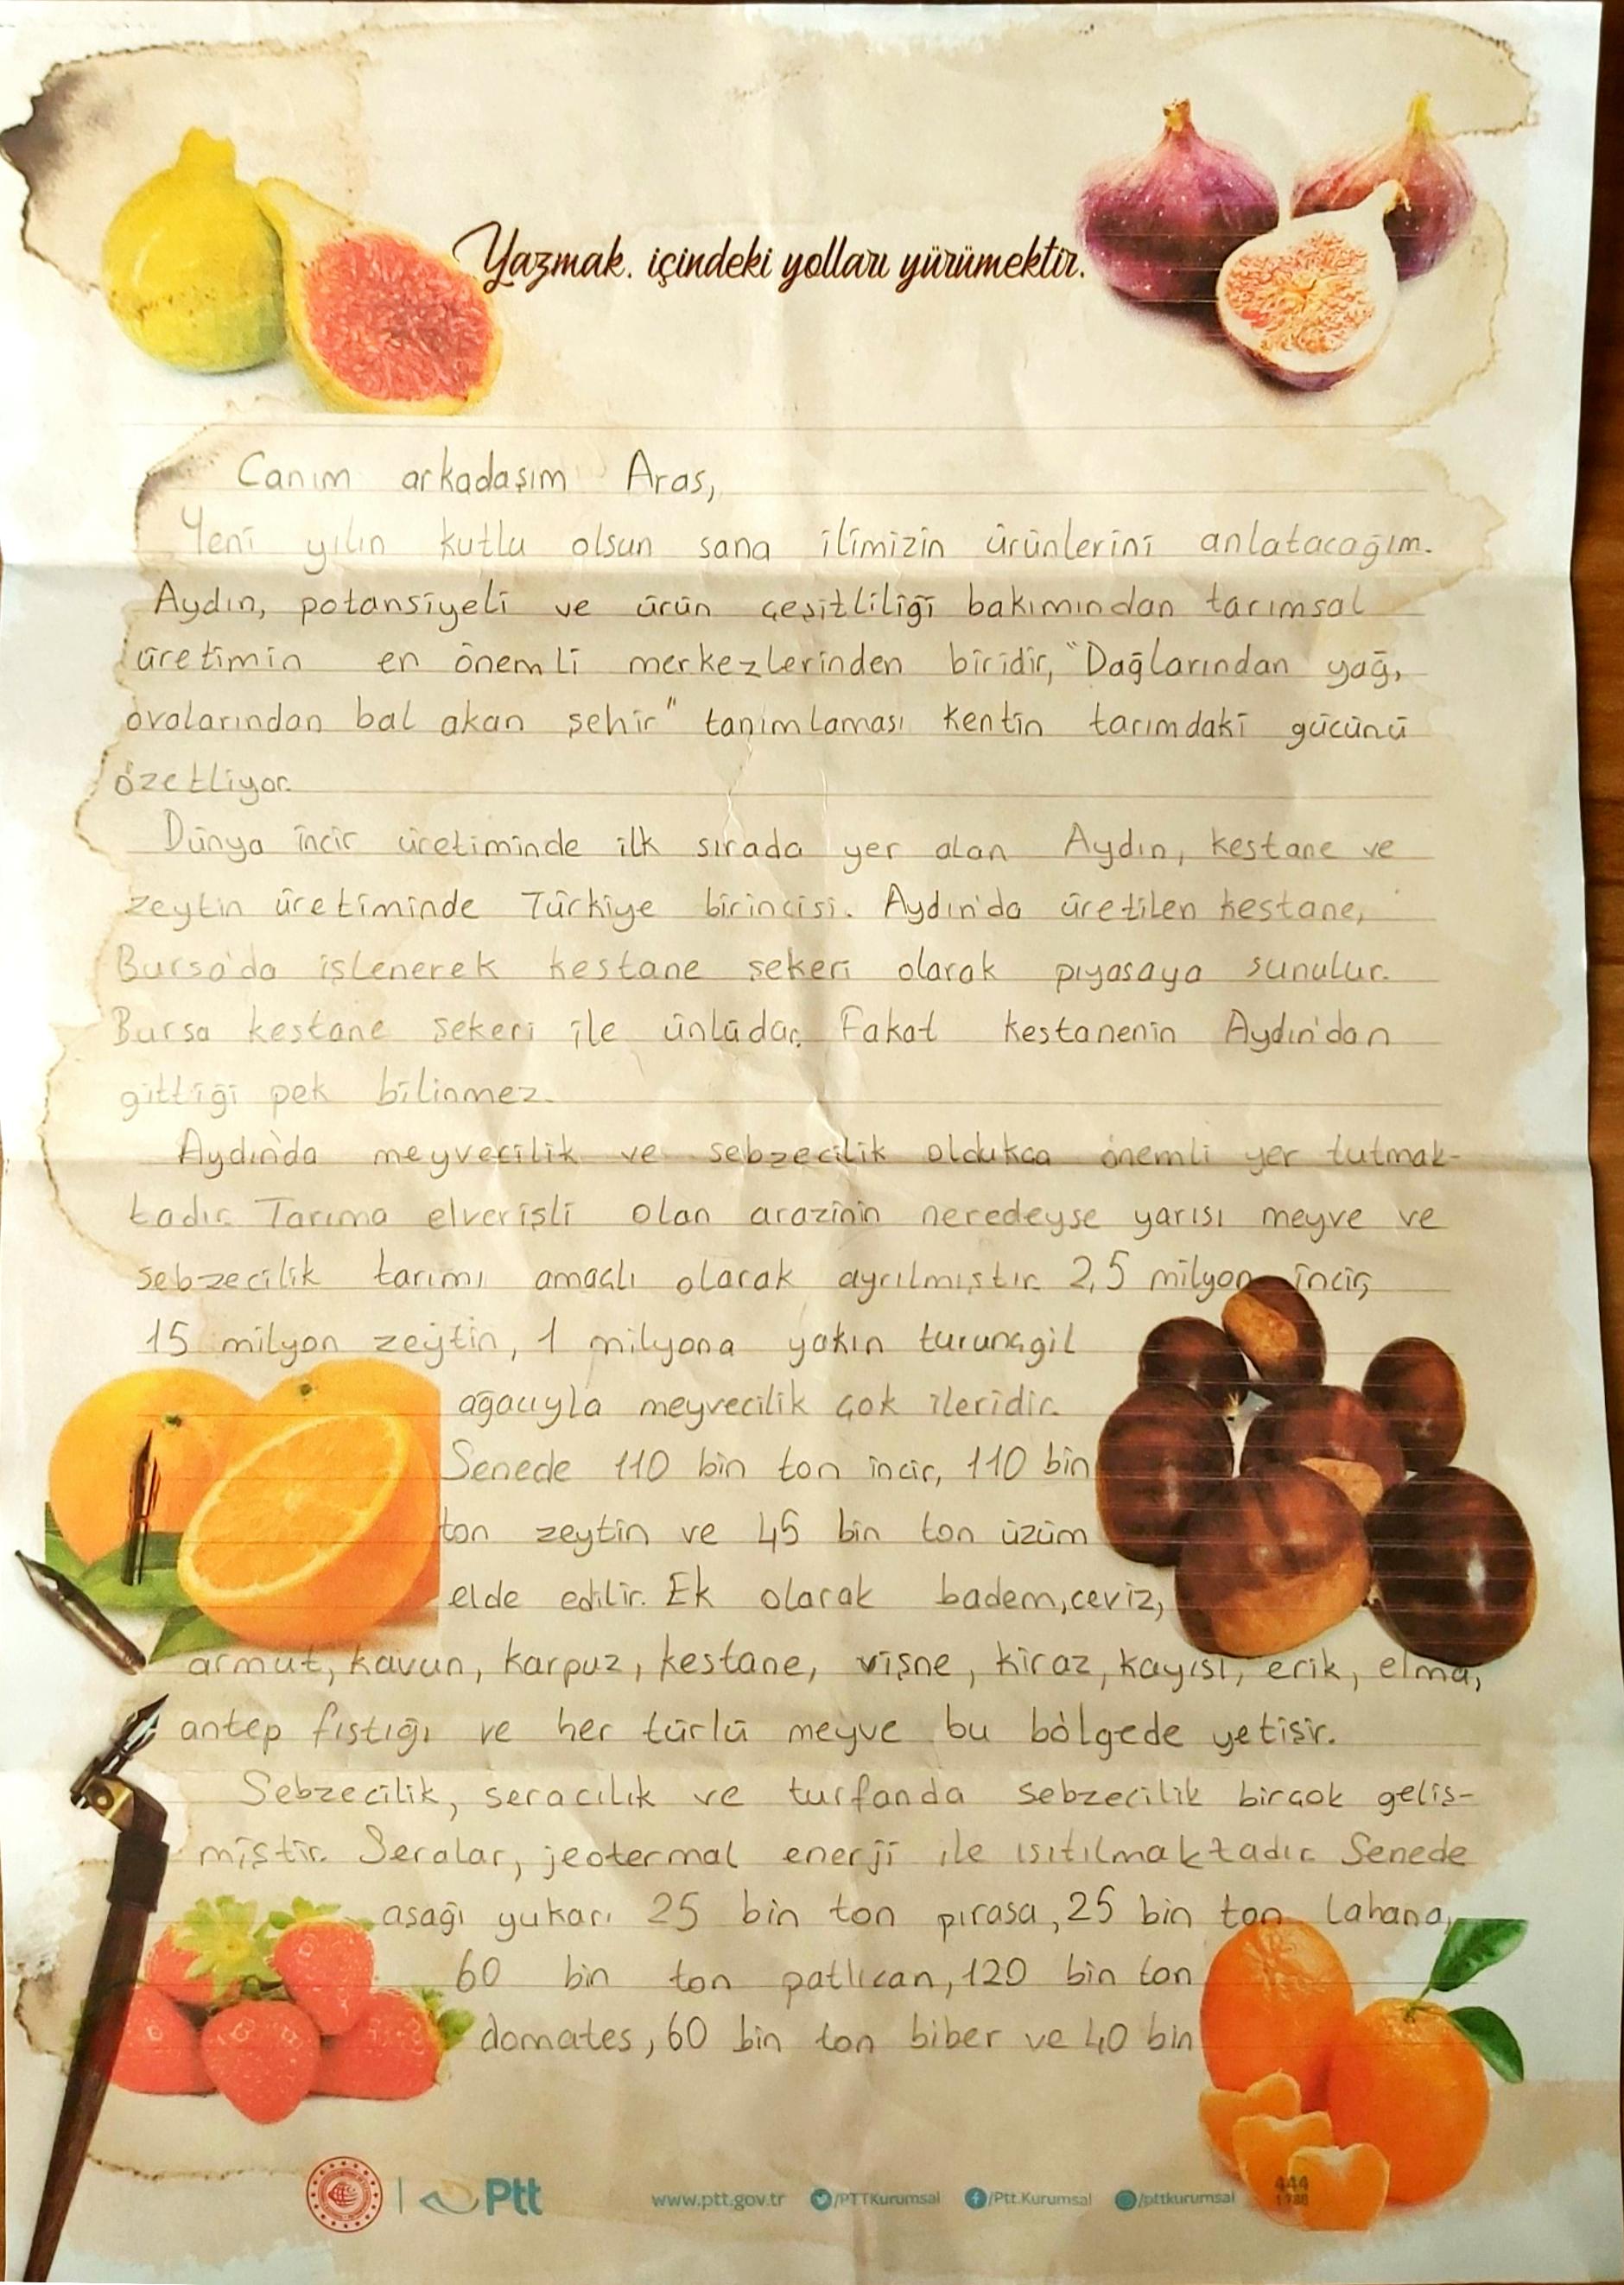 Yazmak. içindeki yolları yürümektir.
Canım arkadaşım Aras,
Yeni yılın kutlu olsun sana ilimizin ürünlerini anlatacağım.
Aydın, potansiyeli ve ürün çeşitliliği bakımından tarımsal
üretimin en önemli merkezlerinden biridir, "Dağlarından yağ,
ovalarından bal akan şehir" tanımlaması kentin tarımdaki gücünü
özetliyor.
Dünya incir üretiminde ilk sırada yer alan Aydın, kestane ve
zeytin üretiminde Türkiye birincisi. Aydın'da üretilen kestane,
Bursa'da işlenerek kestane şekeri olarak pıyasaya sunulur.
Bursa kestane şekeri ile ünlüdür. Fakat kestanenin Aydın'dan
gittiği pek bilinmez.
Aydın'da meyvecilik ve sebzecilik oldukca önemli yer tutmak-
tadır. Tarıma elverişli olan arazinin neredeyse yarısı meyve ve
sebzecilik tarımı amaçlı olarak ayrılmıştır. 2,5 milyon incir,
15 milyon zeytin, 1 milyona yakın turunçgil
ağacıyla meyvecilik çok ileridir.
Senede 110 bin ton incir, 110 bin
ton zeytin ve 45 bin ton üzüm
elde edilir. Ek olarak badem, ceviz,
armut, kavun, karpuz, kestane, vişne, kiraz, kayısı, erik, elma,
antep fıstığı ve her türlü meyve bu bölgede yetişir.
Sebzecilik, seracılık ve turfanda sebzecilik birçok geliş-
miştir. Seralar, jeotermal enerji ile ısıtılmaktadır. Senede
aşağı yukarı 25 bin ton pırasa, 25 bin ton lahana,
60 bin ton patlıcan, 120 bin ton
domates, 60 bin ton biber ve 40 bin
Ptt www.ptt.gov.tr /PTTKurumsal /Ptt.Kurumsal /pttkurumsal 444
1788